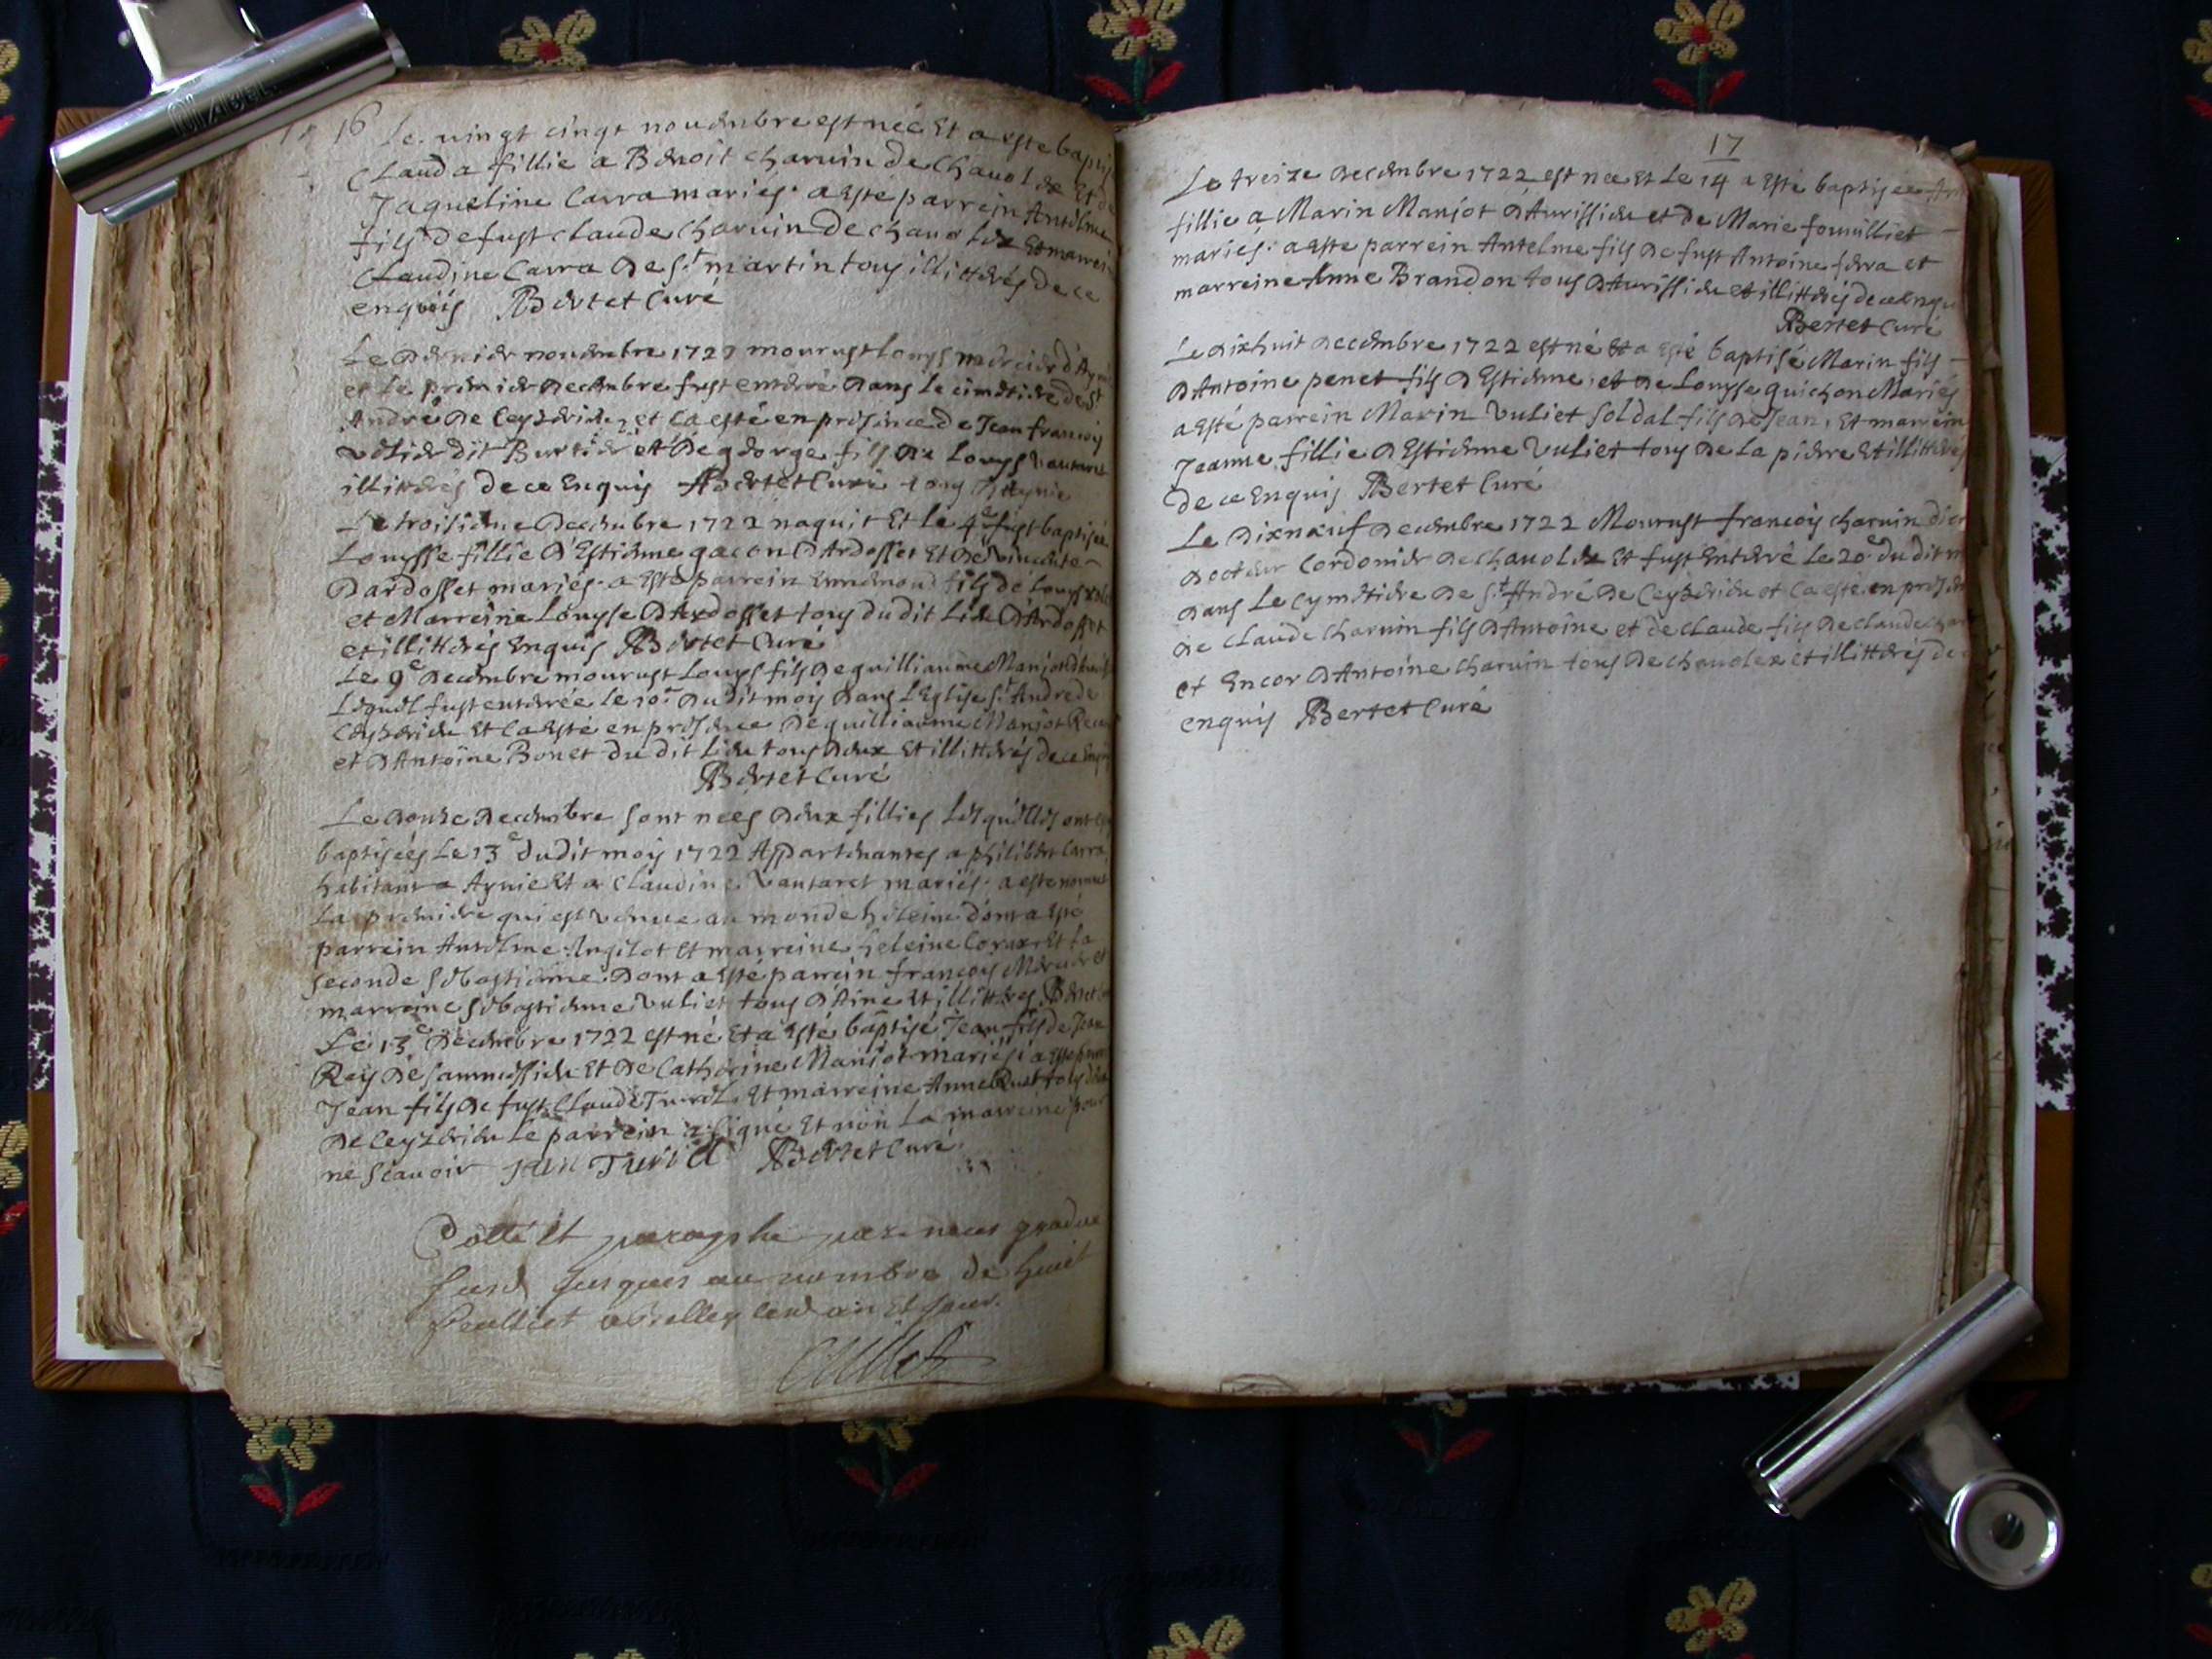 16
Le vingt cingt nouembre est neé Et a este bapti
Clauda fillie a Benoit charuin de Chauolex Et de
Jaqueline Carra mariés. a esté parrein Antelme
fils de fust claude charuin de chauolex Et marrei
Claudine Carra de St martin tous illitterés de ce
enquis Bertet Curé
Le dernier nouembre 1722 mourust Louys mercier
et le premier decembre fust enterré dans le cimetiere de St
André de Ceyzerieu, et ca esté en presence de Jean francois
dit et de george fils de Louys Vautaret
illitterés de ce Enquis Bertet Curé tous d'Aynie
Le troisieme decembre 1722 naquit Et le 4e fust baptisée
Louysse fillie d'Estienne gacon d'Ardosset Et de vincente
Dardosset mariés. a Esté parrein Ennemond fils de Louys
et Marreine Louyse d'Ardosset tous du dit Lieu d'Ardosset
et illitterés Enquis Bertet Curé
Le 9e decembre mourust Louys fils de guilliaume Manjot
Lequel fust enterrée le 10e du dit moys dans l'Eglise St André de
Ceyzerieu Et ca Esté en presence de guilliaume Manjot
et d'Antoine Bonet du dit Lieu tous deux Et illitterés de ce Enquis
Bertet Curé
Le douze decembre sont neés deux fillies Lesquelles ont
baptiseés Le 13e du dit moys 1722 Appartenantes a philibert Carra
habitant a Aynie Et a Claudine Vautaret mariés. a este nommé
La premiere qui est venue au monde heleine dont a Esté
parrein Antelme Angilot Et marreine heleine Et la
seconde sebastienne. dont a Esté parrein francois Mercier et
marreine sebastienne Vuliet tous d'Aine Et illitterés Bertet
Le 13e decembre 1722 est né Et a Esté baptisé Jean fils de Jean
Rey de sammessieu Et de Catherine Manjot mariés. a Esté
Jean fils de fust Claude Et marreine Anne tous
de Ceyzerieu Le parrein a signé Et non La marreine pour
ne scauoir Bertet Curé
Cotté Et paraphé par nous gradué
jusques au nombre de huit
feulliet a Belley an Et jour.
17
Le treize decembre 1722 est nee Et Le 14 a Esté baptisee
fillie a Marin Manjot d'Aurissieu et de Marie fouuilliet
mariés. a este parrein Antelme fils de fust Antoine ferra et
marreine Anne Brandon tous d'Aurissieu et illitterés de ce Enqui
Bertet Curé
Le dixhuit decembre 1722 est né Et a Esté baptisé Marin fils
d'Antoine penet fils d'Estienne, et de Louyse quichon Mariés
a Esté parrein Marin Vuliet soldal fils de Jean, Et marrein
Jeanne fillie d'Estienne Vuliet tous de La pierre Et illitterés
de ce Enquis Bertet Curé
Le dixneuf decembre 1722 Mourust francois charuin
docteur Cordonier de chauolex Et fust Enterré Le 20e du dit m
dans Le cymetiere de St André de Ceyzerieu et ca esté en presen
de claude charuin fils d'Antoine et de claude fils de claude
et Encor d'Antoine charuin tous de chauolex et illitterés de
enquis Bertet Curé